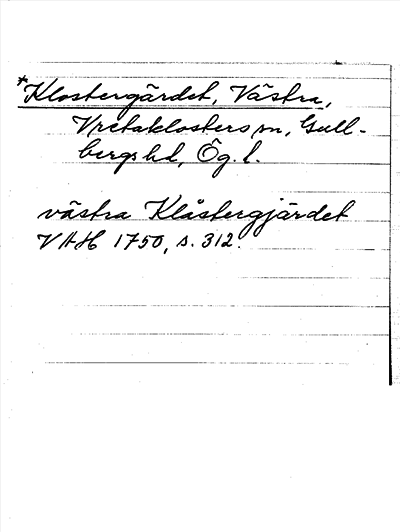 *Klostergärdet, Västra,
Vretaklosters sn, Gull-
bergs hd, Ög. l.
västra Klåstergjärdet
VAH 1750, s. 312.